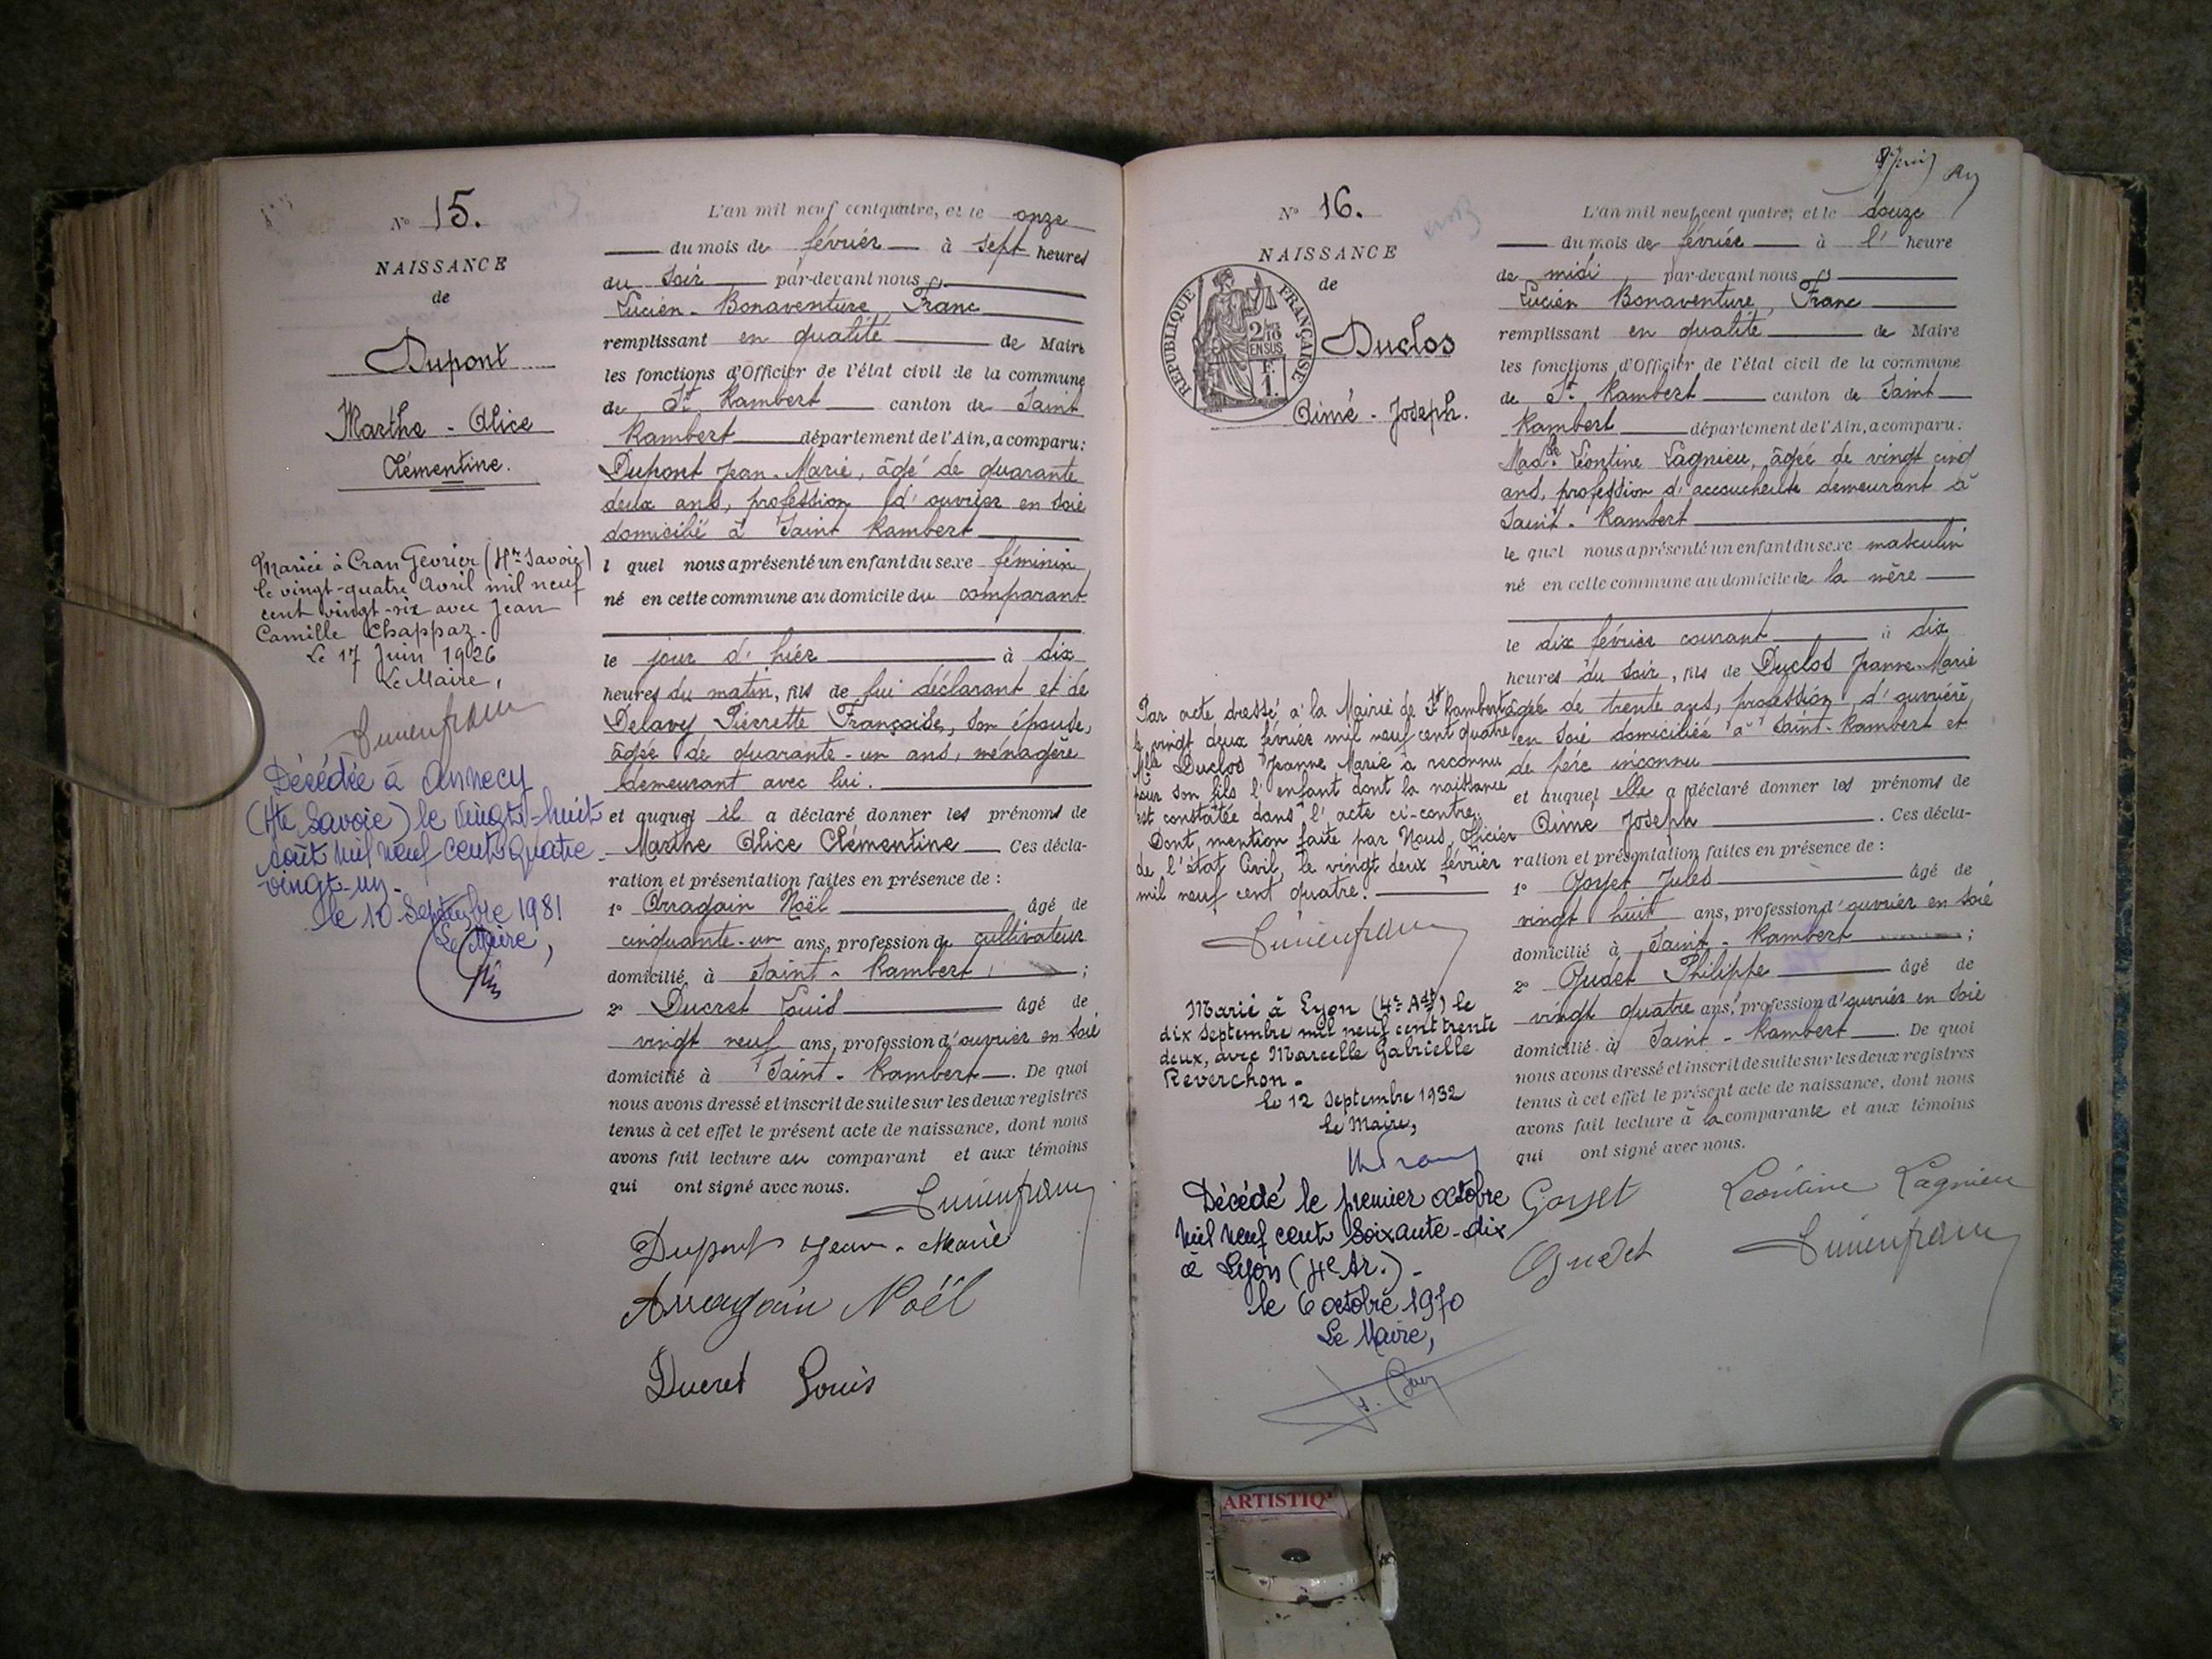 N° 15.
NAISSANCE
de
Dupont
Marthe - Alice
Clémentine.
Mariée à Cran Gevrier (Hte Savoie)
le vingt-quatre Avril mil neuf
cent vingt-six avec Jean
Camille Chappaz.
Le 17 Juin 1926
Le Maire,
Décédée à Annecy
(Hte Savoie) le vingt-huit
août mil neuf cent quatre
vingt-un.
le 10 Septembre 1981
Le Maire,
L'an mil neuf cent quatre, et le onze
du mois de février à sept heures
du soir par-devant nous
Lucien - Bonaventure Franc
remplissant en qualité de Maire
les fonctions d'Officier de l'état civil de la commune
de St Rambert canton de Saint
Rambert département de l'Ain, a comparu:
Dupont Jean-Marie, âgé de quarante
deux ans, profession d'ouvrier en soie
domicilié à Saint Rambert
l quel nous a présenté un enfant du sexe féminin
né en cette commune au domicile du comparant
le jour d'hier à dix
heures du matin, fils de lui déclarant et de
Delavy Pierrette Françoise, son épouse,
âgée de quarante-un ans, ménagère
demeurant avec lui.
et auquel il a déclaré donner les prénoms de
Marthe Alice Clémentine Ces décla-
ration et présentation faites en présence de :
1° Arragain Noël âgé de
cinquante-un ans, profession de cultivateur
domicilié à Saint-Rambert ;
2° Ducret Louis âgé de
vingt neuf ans, profession d'ouvrier en soie
domicilié à Saint-Rambert. De quoi
nous avons dressé et inscrit de suite sur les deux registres
tenus à cet effet le présent acte de naissance, dont nous
avons fait lecture au comparant et aux témoins
qui ont signé avec nous.
Dupont Jean-Marie
Arragain Noël
Ducret Louis
N° 16.
NAISSANCE
de
REPUBLIQUE FRANÇAISE
2/10
EN SUS
F.
1.
Duclos
Aimé - Joseph.
Par acte dressé à la Mairie de St Rambert
le vingt deux février mil neuf cent quatre
Mlle Duclos Jeanne Marie a reconnu
pour son fils l'enfant dont la naissance
est constatée dans l'acte ci-contre.
Dont mention faite par Nous, Officier
de l'état Civil, le vingt deux février
mil neuf cent quatre.
Marié à Lyon (4e Adt) le
dix septembre mil neuf cent trente
deux, avec Marcelle Gabrielle
Reverchon.
le 12 Septembre 1932
Le Maire,
Décédé le premier octobre
mil neuf cent soixante-dix
à Lyon (4e Ar.).
le 6 octobre 1970
Le Maire,
L'an mil neuf cent quatre, et le douze
du mois de février à l' heure
de midi par-devant nous
Lucien Bonaventure, Franc
remplissant en qualité de Maire
les fonctions d'Officier de l'état civil de la commune
de St Rambert canton de Saint
Rambert département de l'Ain, a comparu:
Made Léontine Lagnieu, âgée de vingt cinq
ans, profession d'accoucheuse demeurant à
Saint-Rambert
le quel nous a présenté un enfant du sexe masculin
né en cette commune au domicile de la mère
le dix février courant à dix
heures du soir, fils de Duclos Jeanne-Marie
âgée de trente ans, profession d'ouvrière
en soie domiciliée à Saint-Rambert et
de père inconnu
et auquel elle a déclaré donner les prénoms de
Aimé Joseph. Ces décla-
ration et présentation faites en présence de :
1° Goyet Jules âgé de
vingt huit ans, profession d'ouvrier en soie
domicilié à Saint-Rambert ;
2° Gudet Philippe âgé de
vingt quatre ans, profession d'ouvrier en soie
domicilié à Saint-Rambert. De quoi
nous avons dressé et inscrit de suite sur les deux registres
tenus à cet effet le présent acte de naissance, dont nous
avons fait lecture à la comparante et aux témoins
qui ont signé avec nous.
Goyet Léontine Lagnieu
Gudet
ARTISTIQ